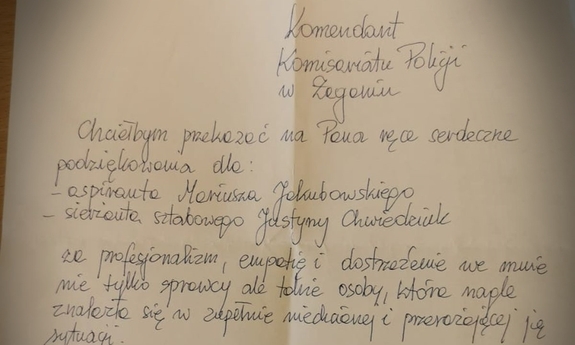 Komendant
Komisariatu Policji
w Żeganiu
Chciałbym przekazać na Pana ręce serdeczne
podziękowania dla:
- aspiranta Mariusza Jakubowskiego
- sierżanta sztabowego Justyny Chwiedziuk
za profesjonalizm, empatię i dostrzeżenie we mnie
nie tylko sprawcy ale także osoby, która nagle
znalazła się w zupełnie niechcianej i przerażającej ją
sytuacji.